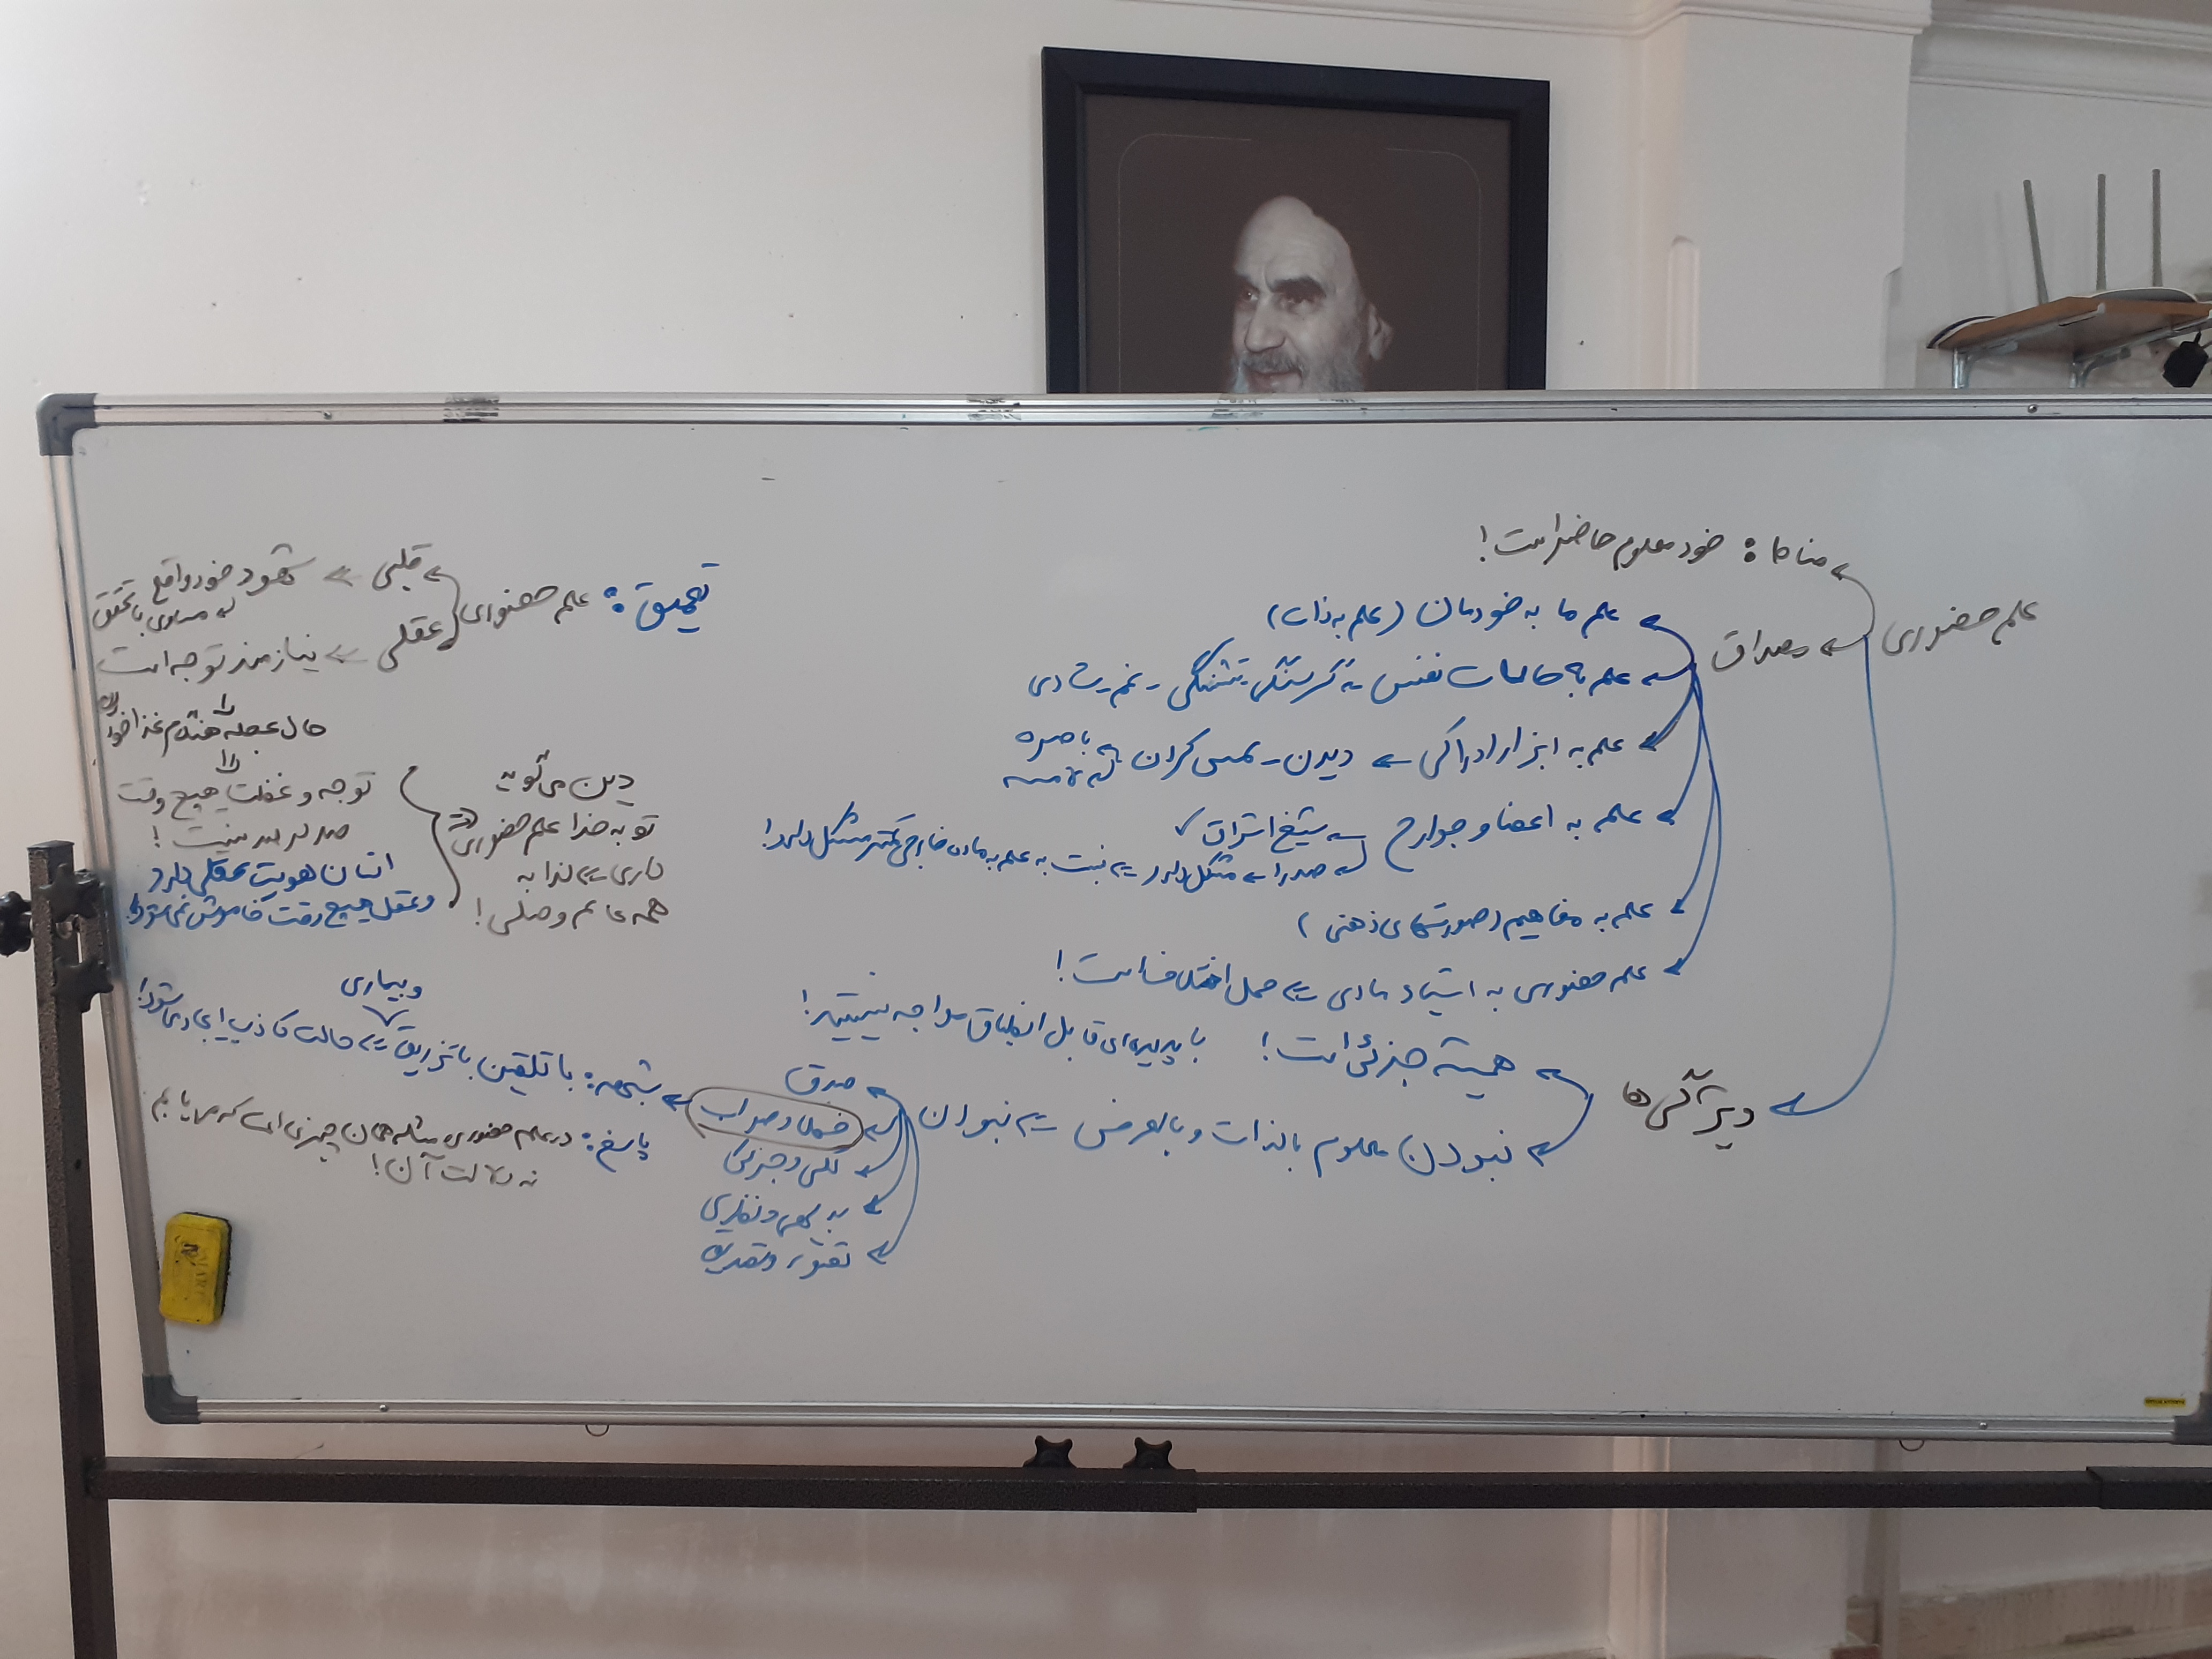 علم حضوری
مناط: خود معلوم حاضر است!
مصداق
علم ما به خودمان (علم به ذات)
علم به حالات نفس ← گرسنگی - تشنگی - غم - شادی
علم به ابزار ادراکی ← دیدن - لمس کردن
باصره
لامسه
علم به اعضا و جوارح
شیخ اشراق ✓
صدرا ← مشکل دارد ← نسبت به علم به ماده خارجی مشکل دارد!
علم به مفاهیم (صورتهای ذهنی)
علم حضوری به اشیاء مادی ← محل اختلاف است!
ویژگی‌ها
همیشه جزئی است! با پدیده‌ای قابل انطباق مواجه نیستیم!
نبودن معلوم بالذات و بالعرض ← نبودن
صدق
خطا و صواب
کلی و جزئی
بدیهی و نظری
تصور و تصدیق
شبهه: با تلقین یا تزریق ← حالت کاذب ایجاد می‌شود!
و بیماری
پاسخ: در علم حضوری مسئله همان چیزی است که می‌یابیم
نه دلالت آن!
تعمیق: علم حضوری
قلبی ← شهود خود واقع
مساوی با تحقق
عقلی ← نیازمند توجه است
حال عجله هنگام غذا خوردن
توجه و غفلت هیچ وقت
صد در صد نیست!
انسان هویت عقلی دارد
و عقل هیچ وقت خاموش نمی‌شود!
دین می‌گوید
تو به خدا علم حضوری
داری ← لذا به
همه عالم وصلی!